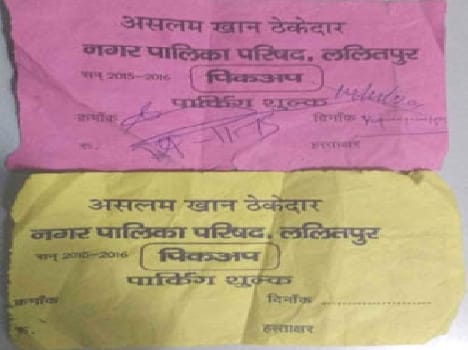 असलम खान ठेकेदार
नगर पालिका परिषद, ललितपुर
सन् 2015-2016 पिकअप
पार्किंग शुल्क
क्रमाँक दिनाँक
रु. हस्ताक्षर
असलम खान ठेकेदार
नगर पालिका परिषद, ललितपुर
सन् 2015-2016 पिकअप
पार्किंग शुल्क
क्रमाँक दिनाँक ....................
रु. हस्ताक्षर